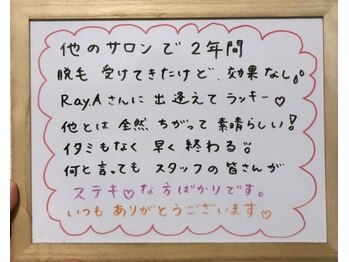 他のサロンで2年間
脱毛 受けてきたけど、効果なし。。
Ray.Aさんに 出逢えて ラッキー♡
他とは 全然 ちがって 素晴らしい!
イタミもなく 早く 終わる。。
何と言っても スタッフの 皆さんが
ステキ♡な方ばかりです。
いつも ありがとうございます♡